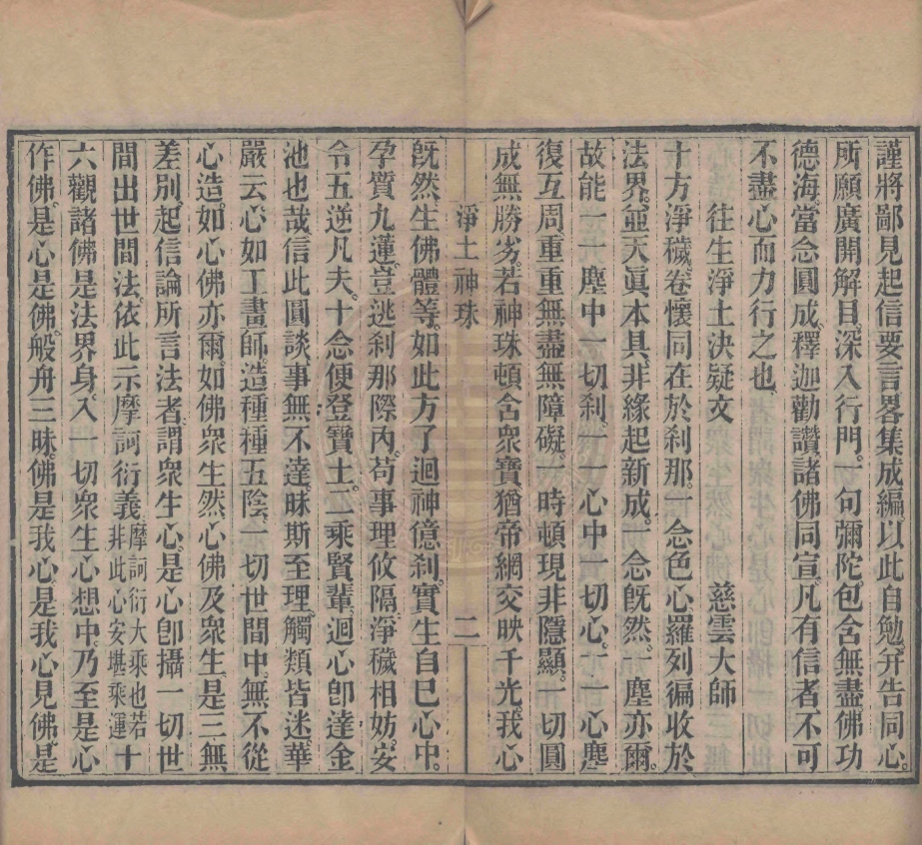 謹將鄙見起信要言畧集成編以此自勉幷告同心。
所願廣開解目。深入行門。一句彌陀包含無盡佛功
德海。當念圓成。釋迦勸讚。諸佛同宣。凡有信者不可
不盡心而力行之也。
往生淨土決疑文　慈雲大師
十方淨穢。卷懷同在於刹那。一念色心。羅列徧收於
法界。並天眞本具。非緣起新成。一念旣然。一塵亦爾。
故能一一塵中一切刹。一一心中一切心。一一心塵
復互周。重重無盡無障礙。一時頓現非隱顯。一切圓
成無勝劣。若神珠頓含衆寶。猶帝網交映千光。我心
淨土神珠　二
旣然。生佛體等。如此方了迴神億刹。實生自己心中。
孕質九蓮。豈逃刹那際內。苟事理攸隔。淨穢相妨。安
令五逆凡夫。十念便登寶土。二乘賢輩。迴心卽達金
池也哉。信此圓談。事無不達。昧斯至理。觸類皆迷。華
嚴云。心如工畫師。造種種五陰。一切世間中。無不從
心造。如心佛亦爾。如佛衆生然。心佛及衆生。是三無
差別。起信論所言法者。謂衆生心。是心卽攝一切世
間出世間法。依此示摩訶衍義摩訶衍大乘也若非此心安堪乘運十
六觀諸佛是法界身。入一切衆生心想中。乃至是心
作佛。是心是佛。般舟三昧。佛是我心。是我心見佛。是